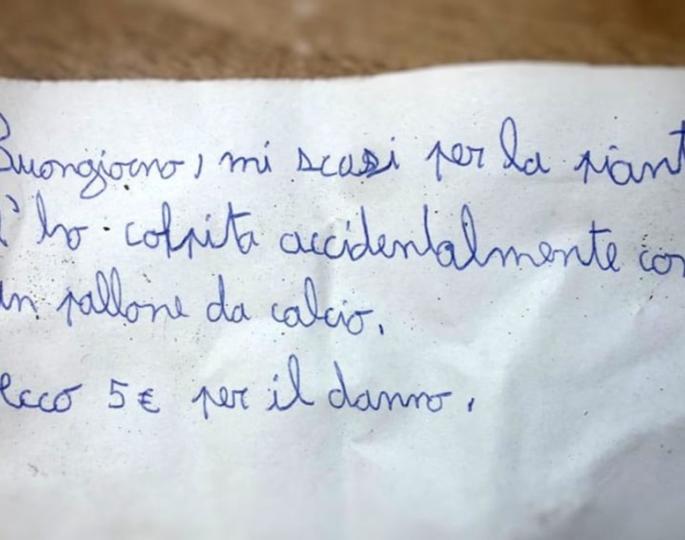 Buongiorno, mi scusi per la piant
l'ho colpita accidentalmente con
un pallone da calcio.
Ecco 5€ per il danno.